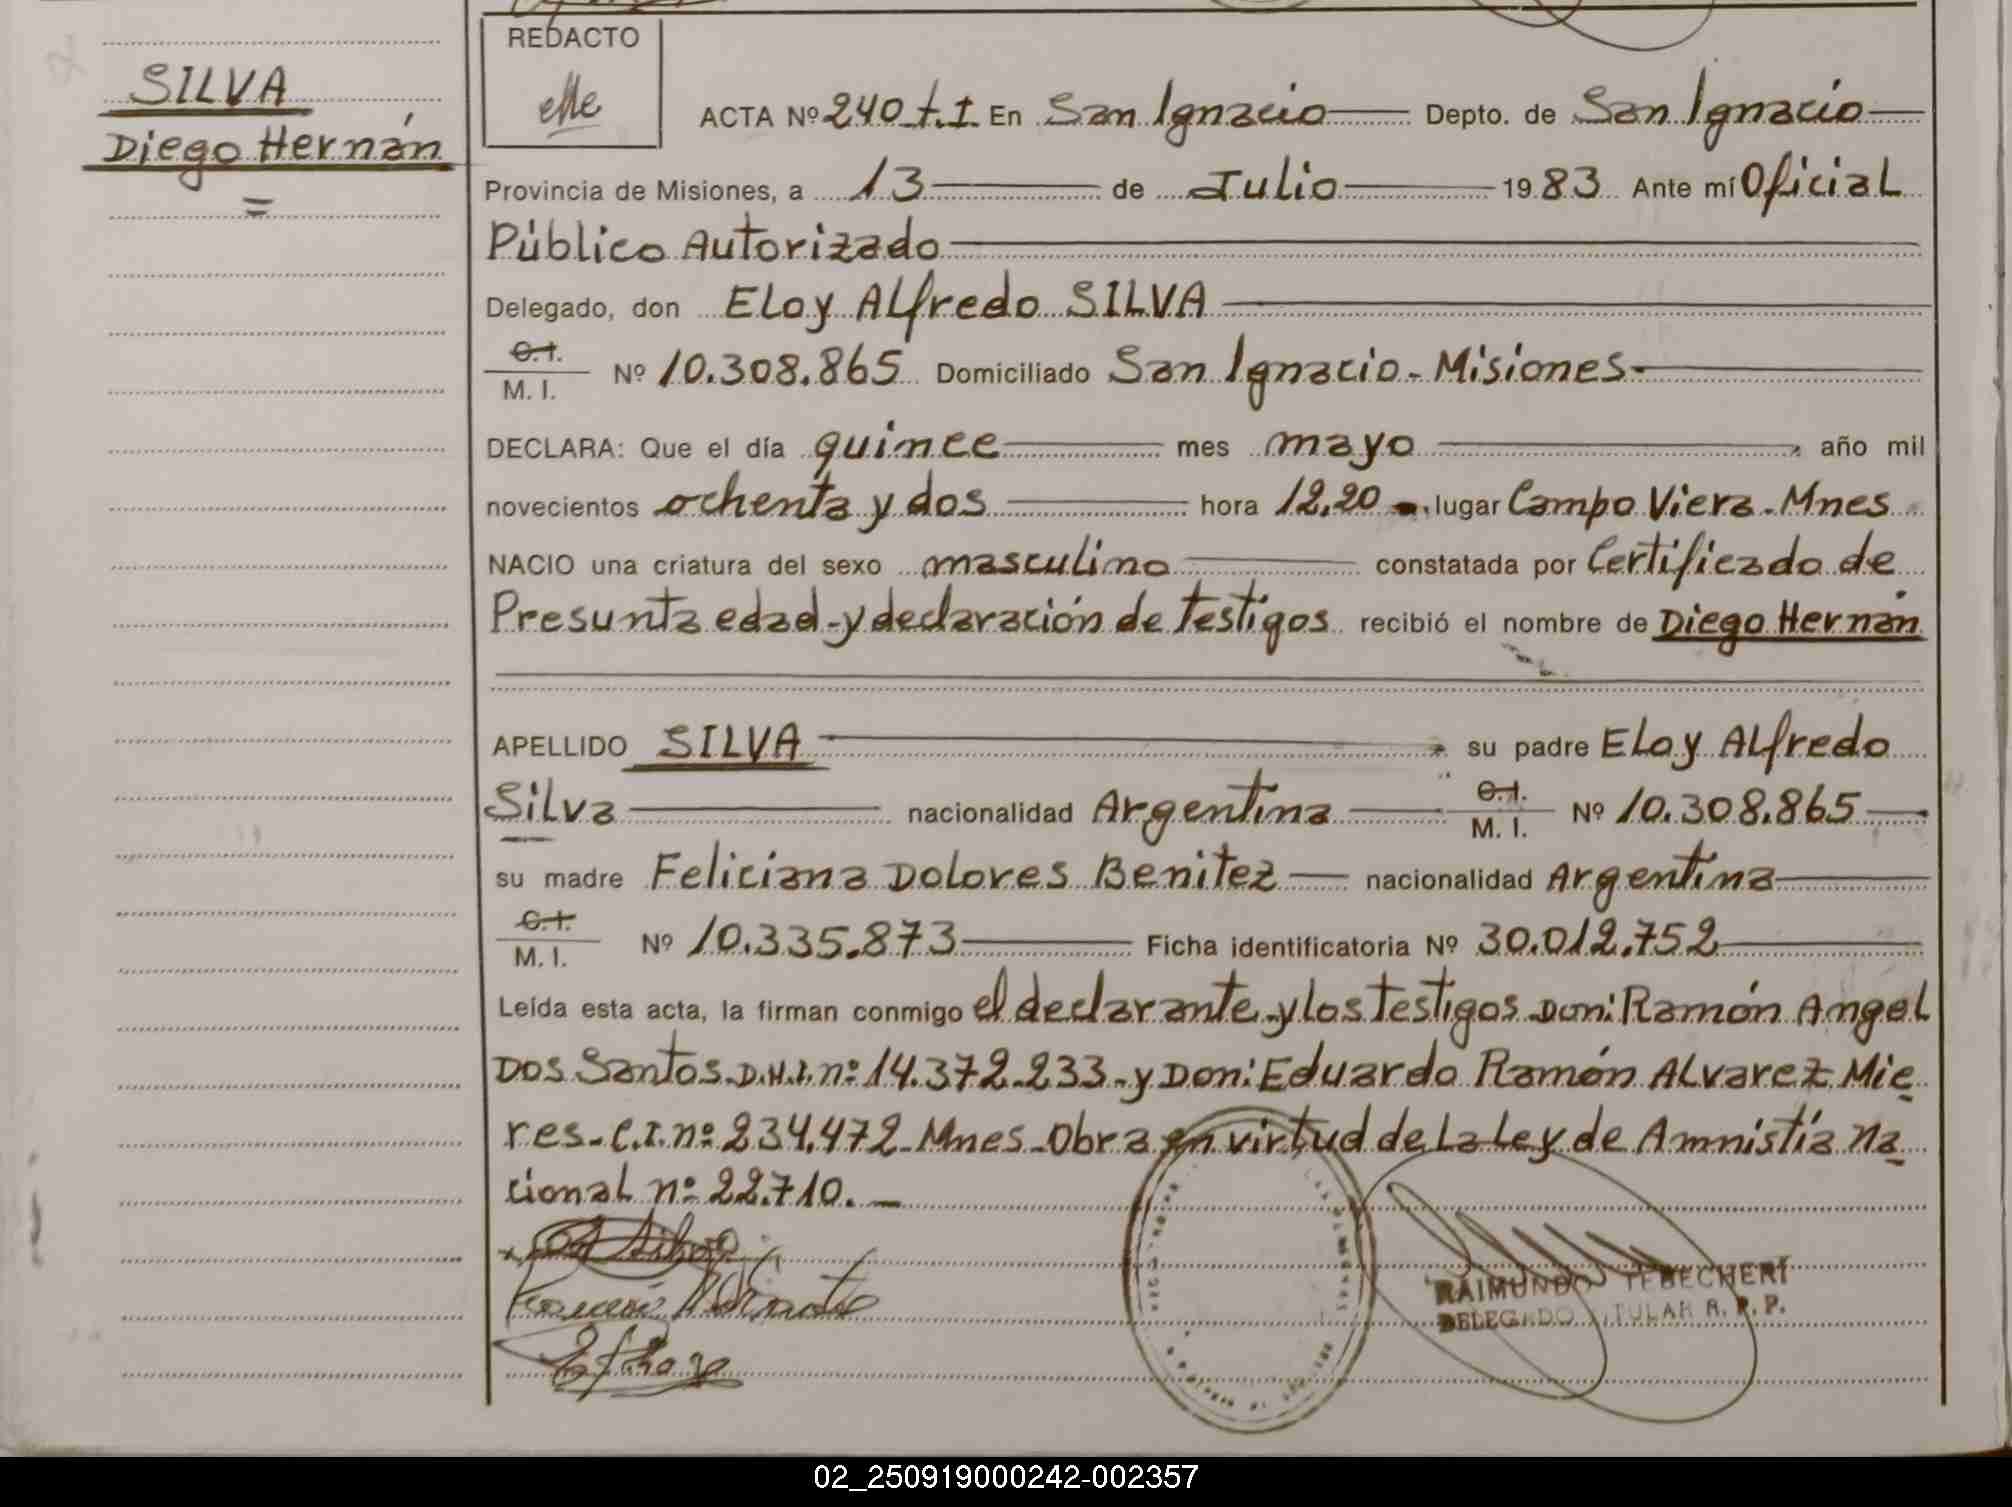 SILVA
Diego Hernán
=
REDACTO
ACTA Nº 240 t.I En San Ignacio Depto. de San Ignacio
Provincia de Misiones, a 13 de Julio 1983 Ante mí Oficial
Público Autorizado
Delegado, don Eloy Alfredo SILVA
C.I.
M. I. Nº 10.308.865 Domiciliado San Ignacio - Misiones-
DECLARA: Que el día quince mes mayo año mil
novecientos ochenta y dos hora 12,20 lugar Campo Viera - Mnes
NACIO una criatura del sexo masculino constatada por Certificado de
Presunta edad - y declaración de testigos recibió el nombre de Diego Hernán
APELLIDO SILVA su padre Eloy Alfredo
Silva nacionalidad Argentina C.I.
M. I. Nº 10.308.865
su madre Feliciana Dolores Benitez nacionalidad Argentina
C.I.
M. I. Nº 10.335.873 Ficha identificatoria Nº 30.012.752
Leída esta acta, la firman conmigo el declarante - y los testigos Don: Ramón Angel
Dos Santos - D.N.I. nº 14.372.233 - y Don: Eduardo Ramón Alvarez Mie
res - C.I. nº 234.472 - Mnes - Obra en virtud de la Ley de Amnistía Na
cional nº 22.710. -
RAIMUNDO TEBECHERI
DELEGADO TITULAR R. P. P.
02_250919000242-002357